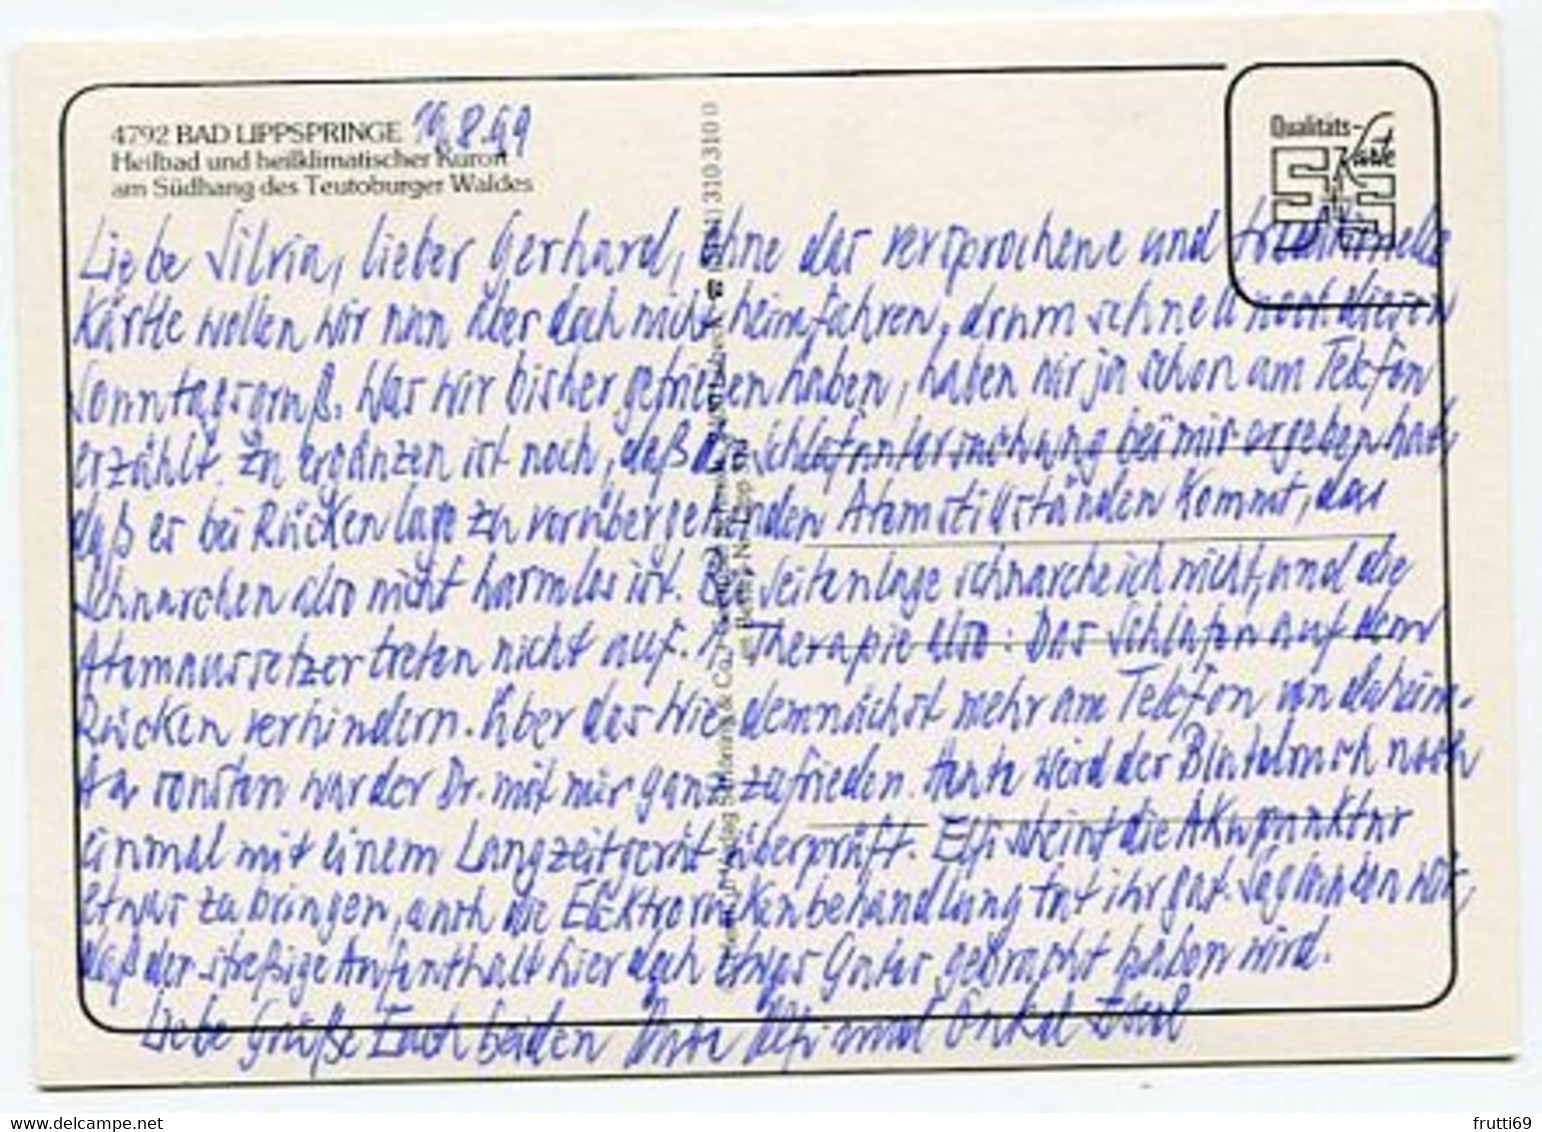 4792 BAD LIPPSPRINGE
Heilbad und heilklimatischer Kurort
am Südhang des Teutoburger Waldes
Qualitäts-
Karte
Liebe Silvia, lieber Gerhard, ohne das versprochene und traditionelle
Kärtle wollen wir nun aber doch nicht heimfahren, drum schnell noch diesen
Sonntagsgruß. Was wir bisher getrieben haben, haben wir ja schon am Telefon
erzählt. Zu ergänzen ist noch, daß die Schlafuntersuchung bei mir ergeben hat,
daß es bei Rückenlage zu vorübergehenden Atemstillständen kommt, das
Schnarchen also nicht harmlos ist. Bei Seitenlage schnarche ich nicht, und die
Atemaussetzer treten nicht auf. Therapie also: Das Schlafen auf dem
Rücken verhindern. Über das Wie demnächst mehr am Telefon von daheim.
Ansonsten war der Dr. mit mir ganz zufrieden. Heute wird der Blutdruck noch
einmal mit einem Langzeitgerät überprüft. Elfi scheint die Akupunktur
etwas zu bringen, auch die Elektrorückenbehandlung tut ihr gut. Sagen wir,
daß der stressige Aufenthalt hier doch etwas Gutes gebracht haben wird.
Liebe Grüße Euch beiden Elfi und Onkel
frutti69